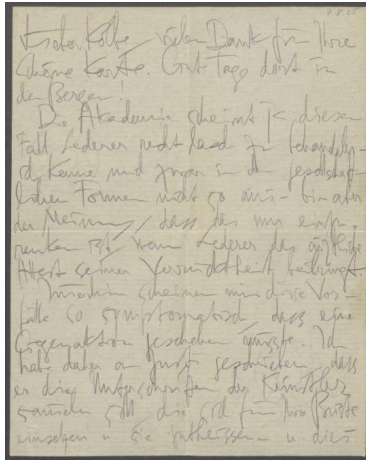 Lieber Kolbe, vielen Dank für Ihre
schöne Karte. Gute Tage dort in
den Bergen!
Die Akademie scheint ja diesen
Fall Lederer recht zu behandeln
ich kenne mich zwar in den gesellschaft-
lichen Formen nicht so aus - bin aber
der Meinung, dass das nur einzu-
renken ist wenn Lederer das ärztliche
Attest seiner Verrücktheit beibringt.
Immerhin scheinen mir diese Vor-
fälle so symptomatisch dass eine
Gegenaktion geschehen müsste. Ich
habe daher an geschrieben, dass
er die Unterschriften der Künstler
sammeln soll, die sich für Ihre Büste
einsetzen u. sie gutheissen - u. dies